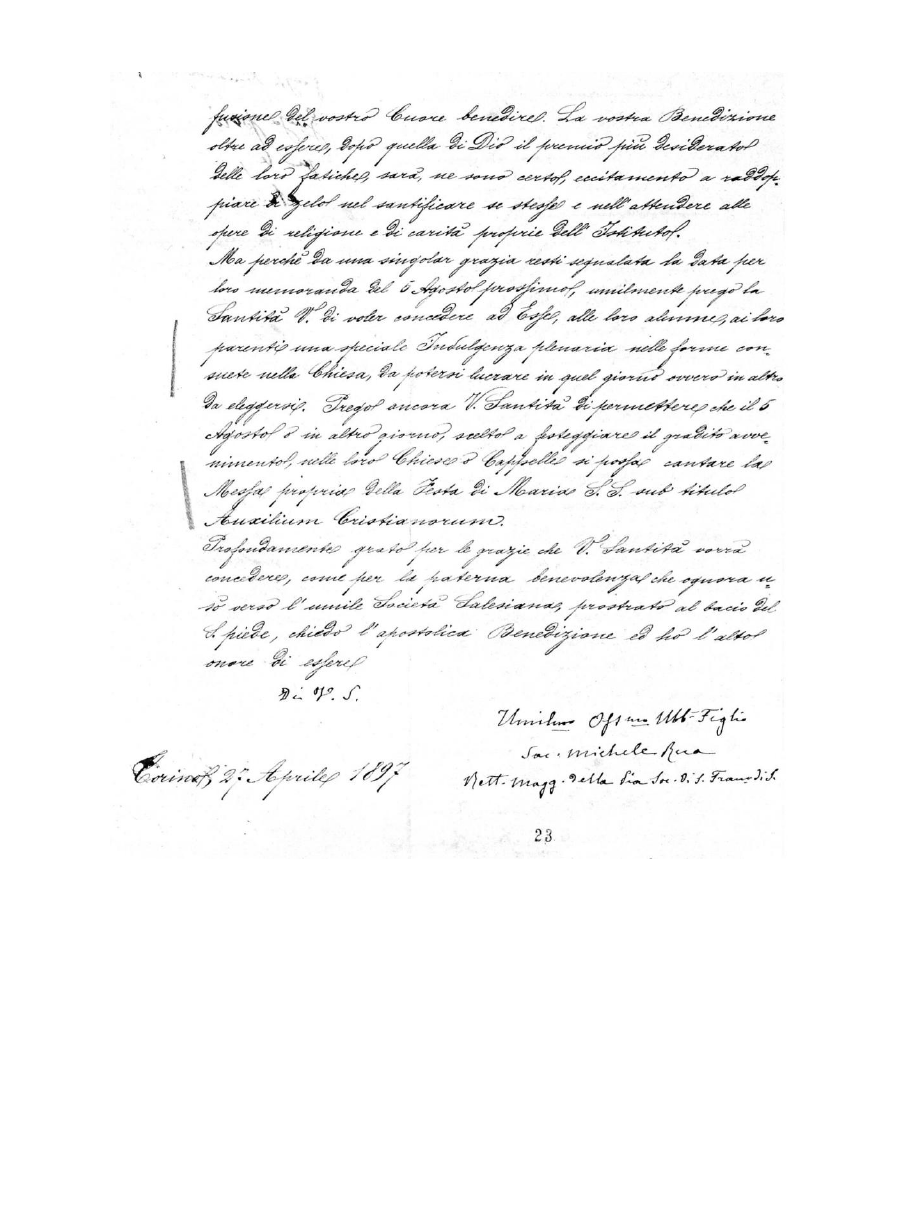 fusione del vostro Cuore benedire. La vostra Benedizione
oltre ad essere, dopo quella di Dio il premio più desiderato
delle loro fatiche, sarà, ne sono certo, eccitamento a raddop-
piare di zelo nel santificare se stesse e nell'attendere alle
opere di religione e di carità proprie dell'Istituto.
Ma perchè da una singolar grazia resti segnalata la data per
loro memoranda del 5 Agosto prossimo, umilmente prego la
Santità V. di voler concedere ad Esse, alle loro alunne, ai loro
parenti una speciale Indulgenza plenaria nelle forme con-
suete nella Chiesa, da potersi lucrare in quel giorno ovvero in altro
da eleggersi. Prego ancora V. Santità di permettere che il 5
Agosto o in altro giorno, scelto a festeggiare il gradito avve-
nimento, nelle loro Chiese o Cappelle si possa cantare la
Messa propria della Festa di Maria S. S. sub titulo
Auxilium Cristianorum.
Profondamente grato per le grazie che V. Santità vorrà
concedere, come per la paterna benevolenza che ognora u-
sò verso l'umile Società Salesiana, prostrato al bacio del
S. piede, chiedo l'apostolica Benedizione ed ho l'alto
onore di essere
Di V. S.
Umilmo Offmo Ubb. Figlio
Sac. Michele Rua
Rett. Magg. della Pia Soc. di S. Franc. di S.
Torino, 27 Aprile 1897
23